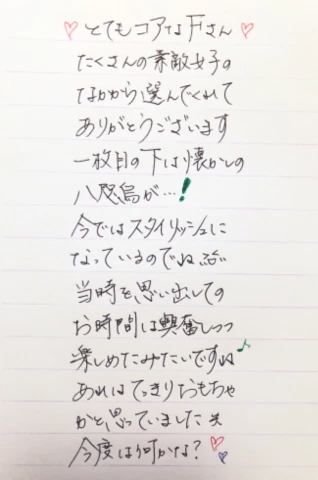 ♡とてもコアなFさん♡
たくさんの素敵女子の
なかから選んでくれて
ありがとうございます
一枚目の下は懐かしの
八怒島が…!
今ではスタイリッシュに
なっているのでね
当時を思い出しての
お時間は興奮しつつ
楽しめたみたいですね♪
あれはてっきりおもちゃ
かと思っていました 笑
今度は何かな?♡♡